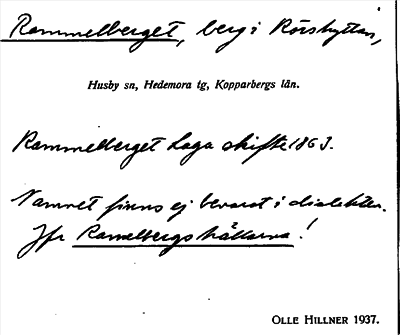 Rammelberget, berg i Rörshyttan,
Husby sn, Hedemora tg, Kopparbergs län.
Rammelberget Laga skifte 1863.
Namnet finns ej bevarat i dialekten.
Jfr Ramelbergshällarna!
OLLE HILLNER 1937.